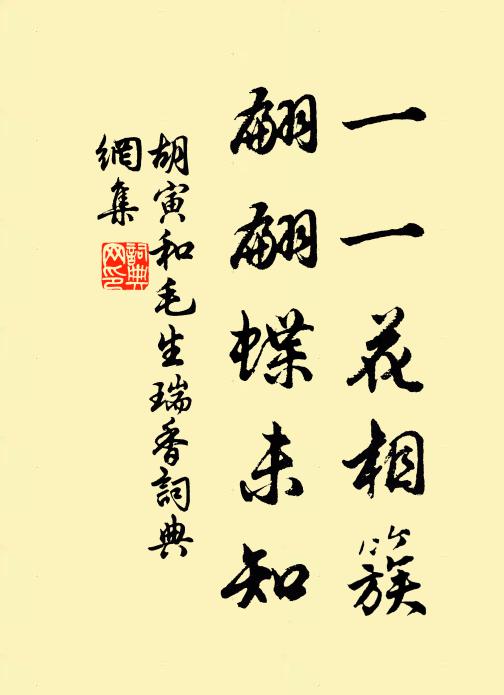 一一花相簇
翩翩蝶未知
胡寅和毛生瑞香詞典
網集
詞典网印